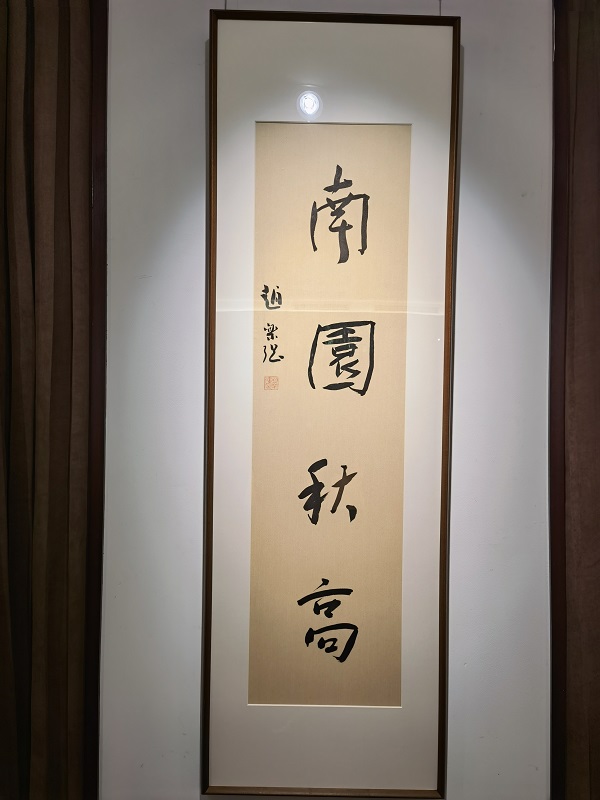 南園秋高
趙樂強